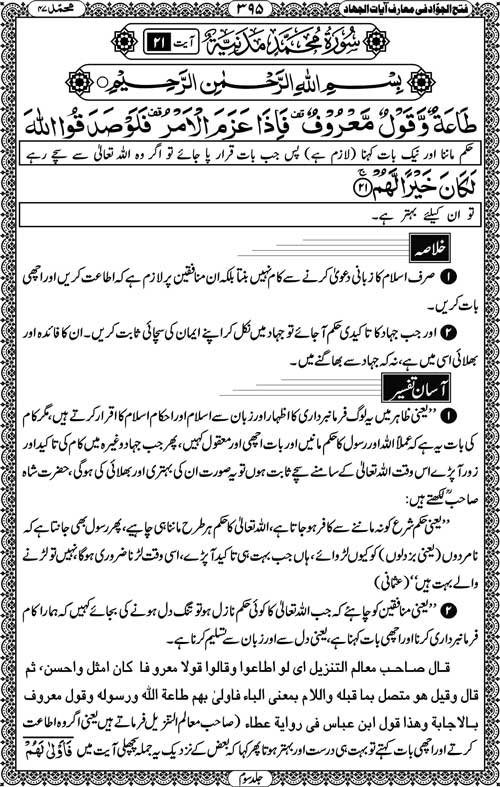 فتح الجوّاد فی معارف آیات الجہاد ۳۹۵ محمّد ۴۷
سُوۡرَةُ مُحَمَّدٍ مَدَنِيَّةٌ آیت ۲۱
بِسۡمِ اللهِ الرَّحۡمٰنِ الرَّحِيۡمِ
طَاعَةٌ وَّقَوۡلٌ مَّعۡرُوۡفٌ ۟ فَاِذَا عَزَمَ الۡاَمۡرُ ۟ فَلَوۡ صَدَقُوا اللّٰهَ
حکم ماننا اور نیک بات کہنا (لازم ہے) پس جب بات قرار پا جائے تو اگر وہ اللہ تعالیٰ سے سچے رہے
لَكَانَ خَيۡرًا لَّهُمۡ ﴿۲۱﴾
تو ان کیلئے بہتر ہے۔
خلاصہ
❶ صرف اسلام کا زبانی دعویٰ کرنے سے کام نہیں بنتا بلکہ ان منافقین پر لازم ہے کہ اطاعت کریں اور اچھی
بات کریں۔
❷ اور جب جہاد کا تاکیدی حکم آجائے تو جہاد میں نکل کر اپنے ایمان کی سچائی ثابت کریں۔ ان کا فائدہ اور
بھلائی اسی میں ہے، نہ کہ جہاد سے بھاگنے میں۔
آسان تفسیر
❶ ’’یعنی ظاہر میں یہ لوگ فرمانبرداری کا اظہار اور زبان سے اسلام اور احکام اسلام کا اقرار کرتے ہیں، مگر کام
کی بات یہ ہے کہ عملاً اللہ اور رسول کا حکم مانیں اور بات اچھی اور معقول کہیں، پھر جب جہاد وغیرہ میں کام کی تاکید اور
زور آپڑے اس وقت اللہ تعالیٰ کے سامنے سچے ثابت ہوں تو یہ صورت ان کی بہتری اور بھلائی کی ہوگی، حضرت شاہ
صاحبؒ لکھتے ہیں:
’’یعنی حکم شرع کو نہ ماننے سے کافر ہو جاتا ہے، اللہ تعالیٰ کا حکم ہر طرح ماننا ہی چاہیے، پھر رسول بھی جانتا ہے کہ
نامردوں (یعنی بزدلوں) کو کیوں لڑوائے، ہاں جب بہت ہی تاکید آپڑے، اسی وقت لڑنا ضروری ہوگا نہیں تو لڑنے
والے بہت ہیں‘‘ (عثمانی)
❷ ’’یعنی منافقین کو چاہئے کہ جب اللہ تعالیٰ کا کوئی حکم نازل ہو تو تنگ دل ہونے کی بجائے کہیں کہ ہمارا کام
فرمانبرداری کرنا اور اچھی بات کہنا ہے، یعنی دل سے اور زبان سے تسلیم کرنا ہے۔
قال صاحب معالم التنزیل ای لو اطاعوا وقالوا قولا معروفا کان امثل واحسن، ثم
قال وقیل ھو متصل بما قبلہ واللام بمعنی الباء فاولیٰ بھم طاعة اللہ ورسولہ وقول معروف
بالاجابة وھذا قول ابن عباس فی روایة عطاء (صاحب معالم التنزیل فرماتے ہیں یعنی اگر وہ اطاعت
کرتے اور اچھی بات کہتے تو بہت ہی درست اور بہتر ہوتا پھر کہا کہ بعض کے نزدیک یہ جملہ پچھلی آیت میں فَاَوۡلٰی لَهُمۡ
جلد سوم